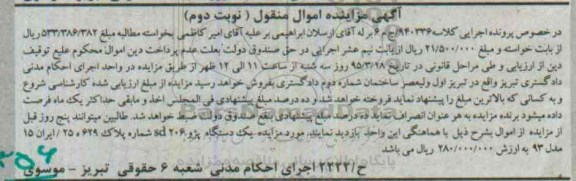 آگهی مزایده اموال منقول ( نوبت دوم)
در خصوص پرونده اجرایی کلاسه ۹۴۰۳۳۶ له آقای ارسلان ابراهیمی بر علیه آقای امیر کاظمی بخواسته مطالبه مبلغ ۵۳۳/۳۸۶/۳۸۲ ریال
از بابت خواسته و مبلغ ۲۱/۵۰۰/۰۰۰ ریال از بابت نیم عشر اجرایی در حق صندوق دولت بعلت عدم پرداخت دین اموال محکوم علیه توقیف
دین از ارزیابی و طی مراحل قانونی در تاریخ ۹۵/۳/۲۸ روز سه شنبه از ساعت ۱۱ الی ۱۲ ظهر از طریق مزایده در واحد اجرای احکام مدنی
دادگستری تبریز واقع در تبریز اول ولیعصر ساختمان شماره دوم دادگستری بفروش خواهد رسید مزایده از مبلغ ارزیابی شده کارشناسی شروع
و به کسانی که بالاترین مبلغ را پیشنهاد نماید فروخته خواهد شد و ده درصد مبلغ پیشنهادی فی المجلس اخذ و مابقی حداکثر یک ماه فرصت
داده میشود برنده مزایده به هر عنوان انصراف نماید ده درصد مبلغ پیشنهادی بنفع صندوق دولت ضبط خواهد شد. طالبین میتوانند پنج روز قبل
از مزایده از اموال بشرح ذیل با هماهنگی این واحد بازدید نمایند. مورد مزایده یک دستگاه پژو ۲۰۶ sd شماره پلاک ۶۲۹ ه ۲۵ / ایران ۱۵
مدل ۹۳ به ارزش ۲۸۰/۰۰۰/۰۰۰ ریال می باشد
ح/۲۲۲۲ اجرای احکام مدنی شعبه ۶ حقوقی تبریز - موسوی